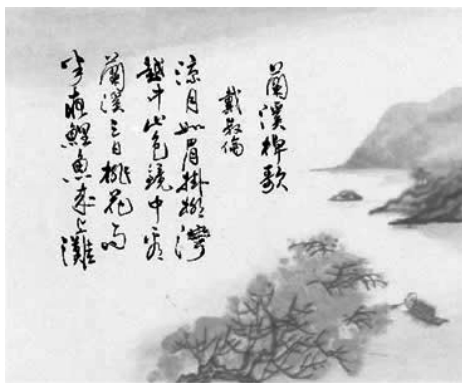 蘭溪棹歌
戴叔倫
涼月如眉掛柳灣
越中山色鏡中看
蘭溪三日桃花雨
半夜鯉魚來上灘